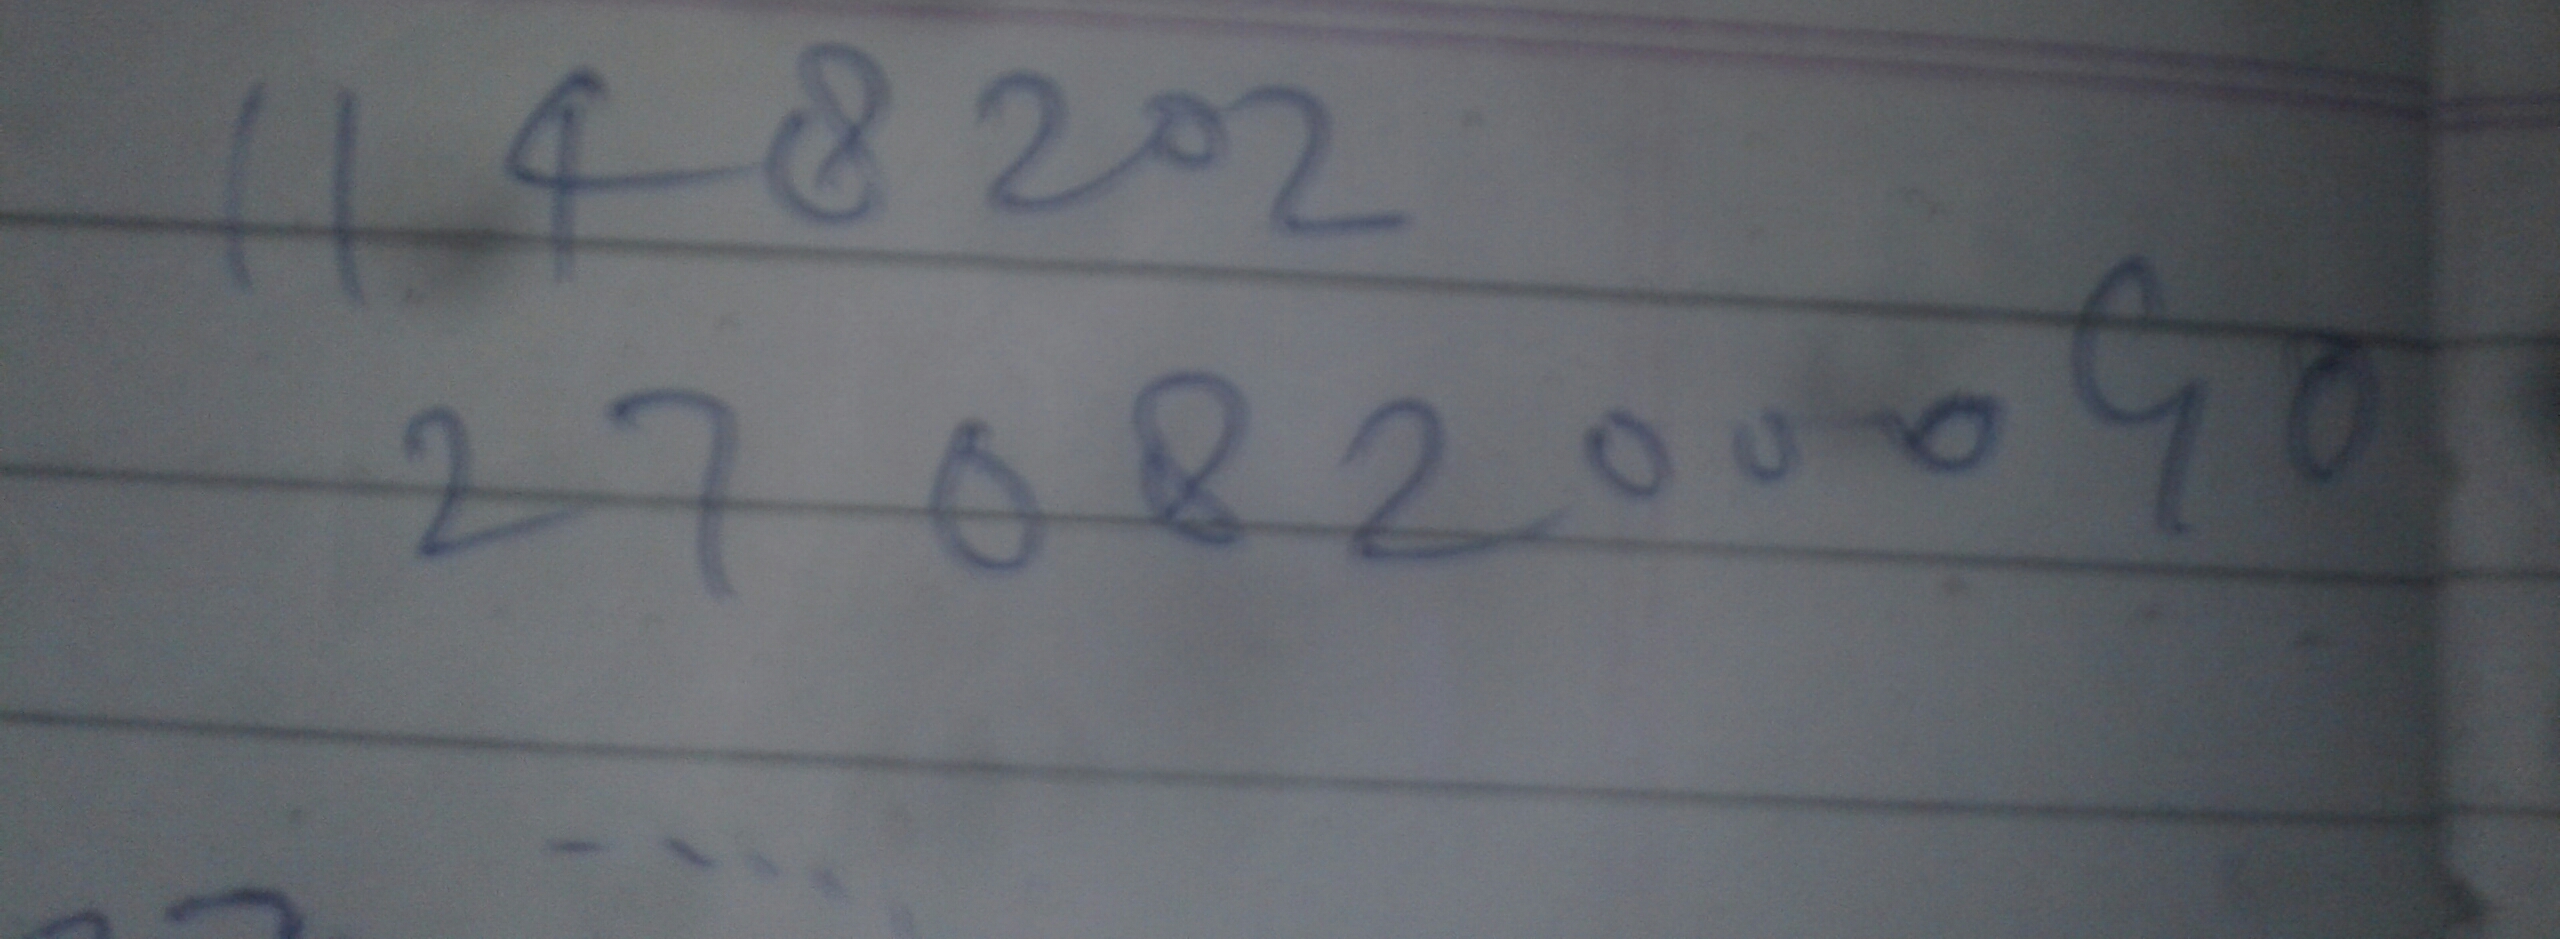 1148202
2708200040